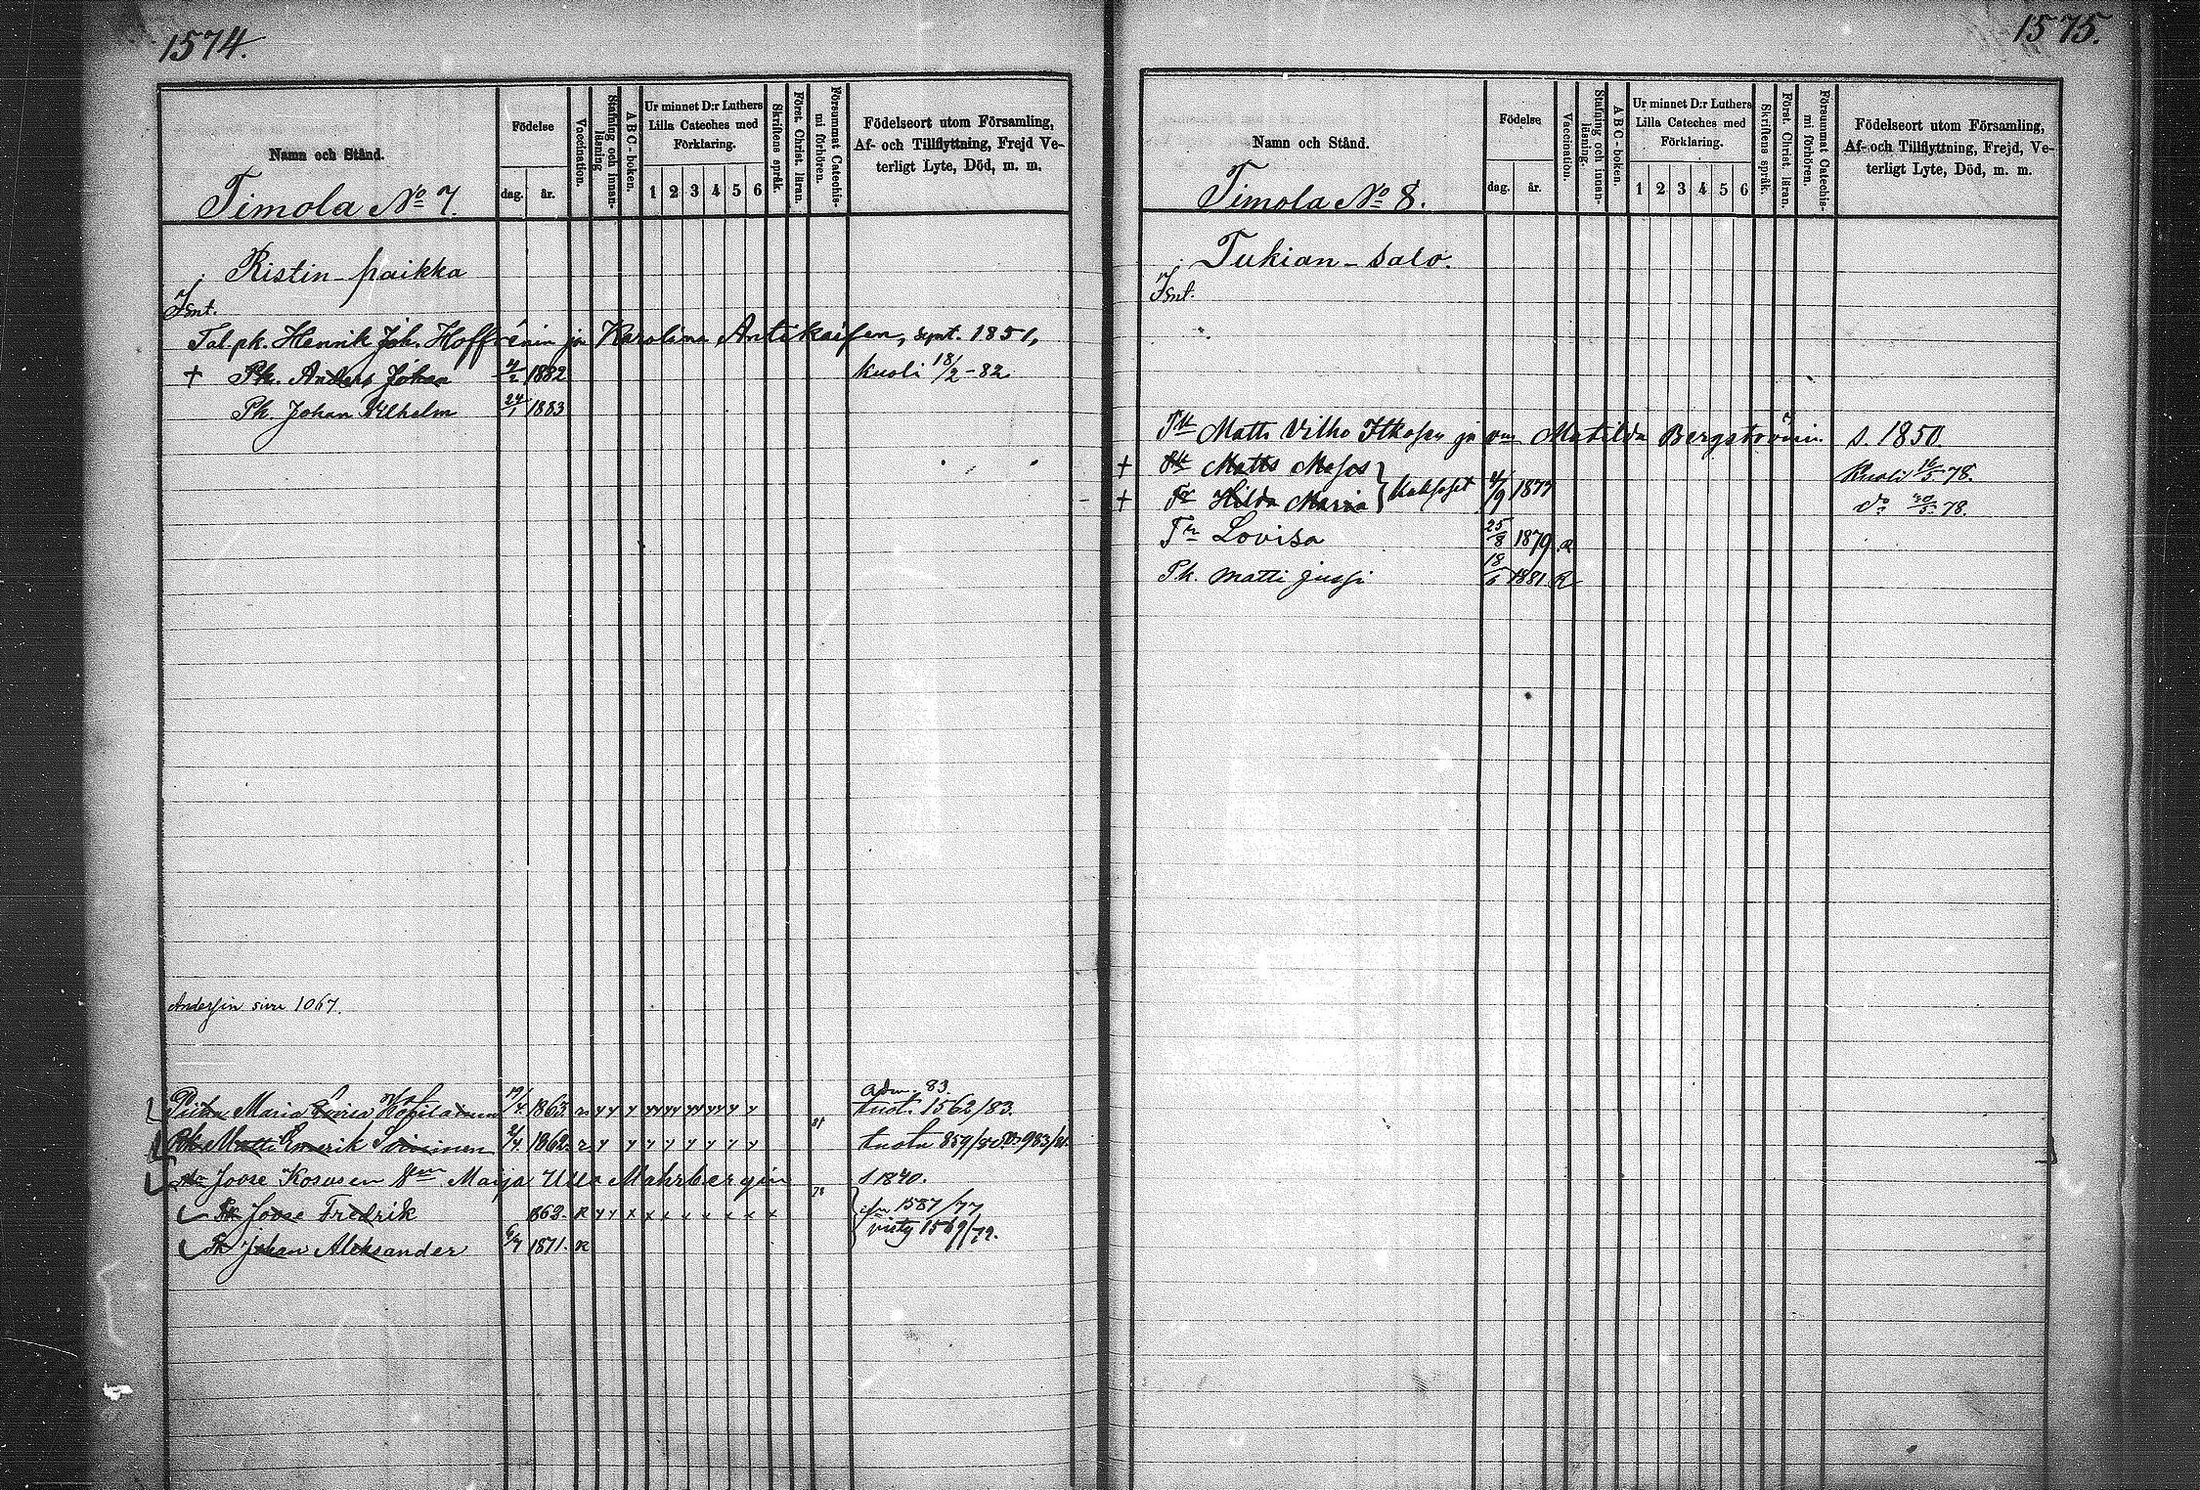 1574.
Namn och Stånd.
Födelse
dag.
år.
Vaccination.
Stafning och innan-läsning
ABC-boken.
Ur minnet D:r Luthers
Lilla Cateches med
Förklaring.
1 2 3 4 5 6
Skriftens språk.
Först. Christ. läran.
Försummat Catechis-mi förhören.
Födelseort utom Församling,
Af- och Tillflyttning, Frejd Ve-
terligt Lyte, Död, m. m.
Timola No 7.
Ristin-paikka
Tal.pk. Henrik Joh. Hoffrénin ja Karolina Antikaisen, synt. 1851,
+ Pk. Anders Johan 1882 kuoli 18/2-82
Pk. Johan Wilhelm 24/1 1883
Anderssin sivu 1067.
Adm. 83.
Piika Maria Lovisa 19/4 1863 tuot. 1562/83.
Pk Matti Emerik Soininen 2/4 1862 tuotu 859/80 983/81
Joose Kososen Maija Ulla Mahrbergin s 1840.
Pk Joose Fredrik 1862 1587/77
Pk Johan Aleksander 6/7 1871 viety 1569/79.
1575.
Namn och Stånd.
Födelse
dag.
år.
Vaccination.
Stafning och innan-läsning.
ABC-boken.
Ur minnet D:r Luthers
Lilla Cateches med
Förklaring.
1 2 3 4 5 6
Skriftens språk.
Först Christ. läran.
Försummat Catechis-mi förhören.
Födelseort utom Församling,
Af- och Tillflyttning, Frejd, Ve-
terligt Lyte, Död, m. m.
Timola No 8.
Tukian-Salo.
Matts Vilho Itkosen ja vm Matilda Bergströmin s. 1850.
+ Pk Matts Moses Kaksoset 4/9 1877 Kuoli 16/5 78.
+ Tr Hilda Maria do 30/5 78.
Tr Lovisa 25/8 1879 R
Pk. Matti Jussi 18/6 1881 R